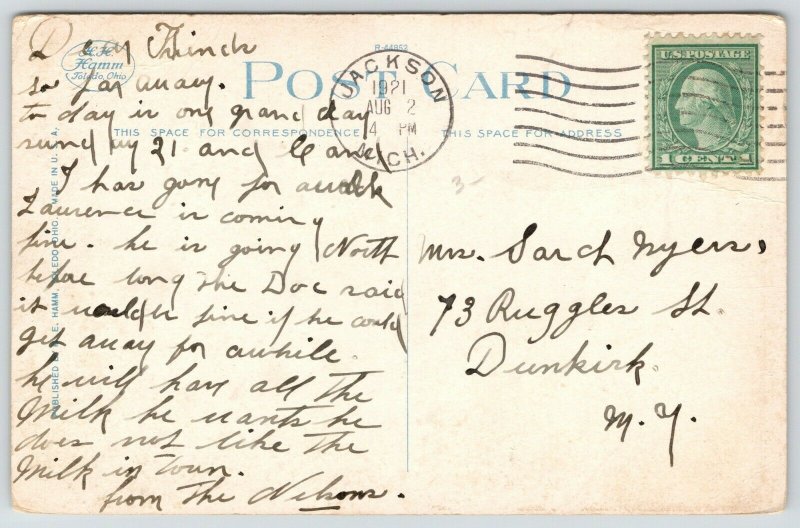 H.H. Hamm
Toledo, Ohio
R-44852
POST CARD
THIS SPACE FOR CORRESPONDENCE
THIS SPACE FOR ADDRESS
JACKSON
1921
AUG 2
4 PM
MICH.
U.S. POSTAGE
1 CENT 1
so far away.
to day is one grand day
21 and
I has gone for
Laurence is coming
fine. he is going North
before long The Doc said
it would be fine if he could
get away for awhile.
he will have all the
Milk he wants he
does not like the
Milk in town.
from The Nelsons.
Mrs. Sarah Myers,
73 Ruggles St.
Dunkirk.
N. Y.
MADE IN U.S.A.